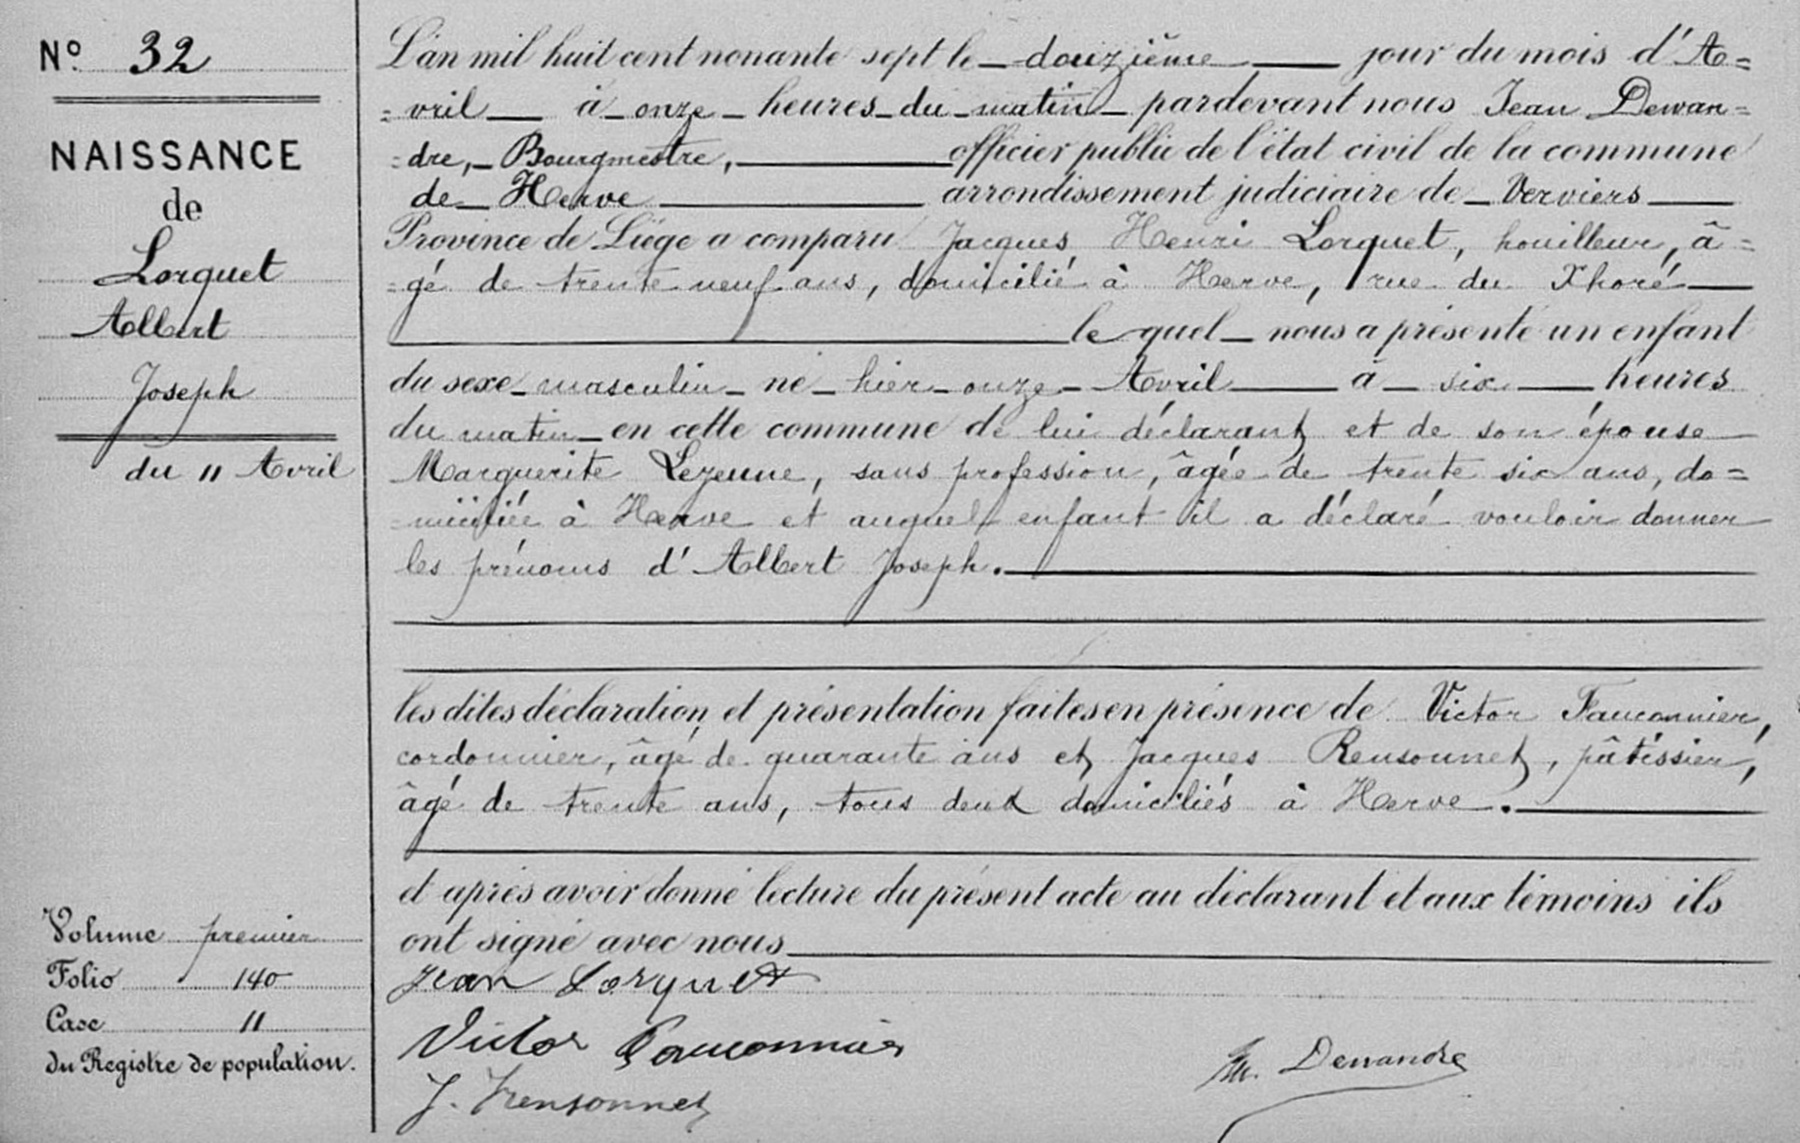 N° 32
NAISSANCE
de
Lorquet
Albert
Joseph
du 11 Avril
L'an mil huit cent nonante sept le douzième jour du mois d'A=
=vril à onze heures du matin pardevant nous Jean Dewan=
=dre, Bourgmestre, officier public de l'état civil de la commune
de Herve arrondissement judiciaire de Verviers
Province de Liége a comparu Jacques Henri Lorquet, houilleur, â=
=gé de trente neuf ans, domicilié à Herve, rue du Xhoré
le quel nous a présenté un enfant
du sexe masculin né hier onze Avril à six heures
du matin en cette commune de lui déclarant et de son épouse
Marguerite Lezeune, sans profession, âgée de trente six ans, do=
=miciliée à Herve et auquel enfant il a déclaré vouloir donner
les prénoms d'Albert Joseph.
les dites déclaration et présentation faites en présence de Victor Fauconnier,
cordonnier, âgé de quarante ans et Jacques Rensonnet, pâtissier,
âgé de trente ans, tous deux domiciliés à Herve.
et après avoir donné lecture du présent acte au déclarant et aux témoins ils
ont signé avec nous
Jean Lorquet
Victor Fauconnier
J. Rensonnet
Dewandre
Volume premier
Folio 140
Case 11
du Registre de population.